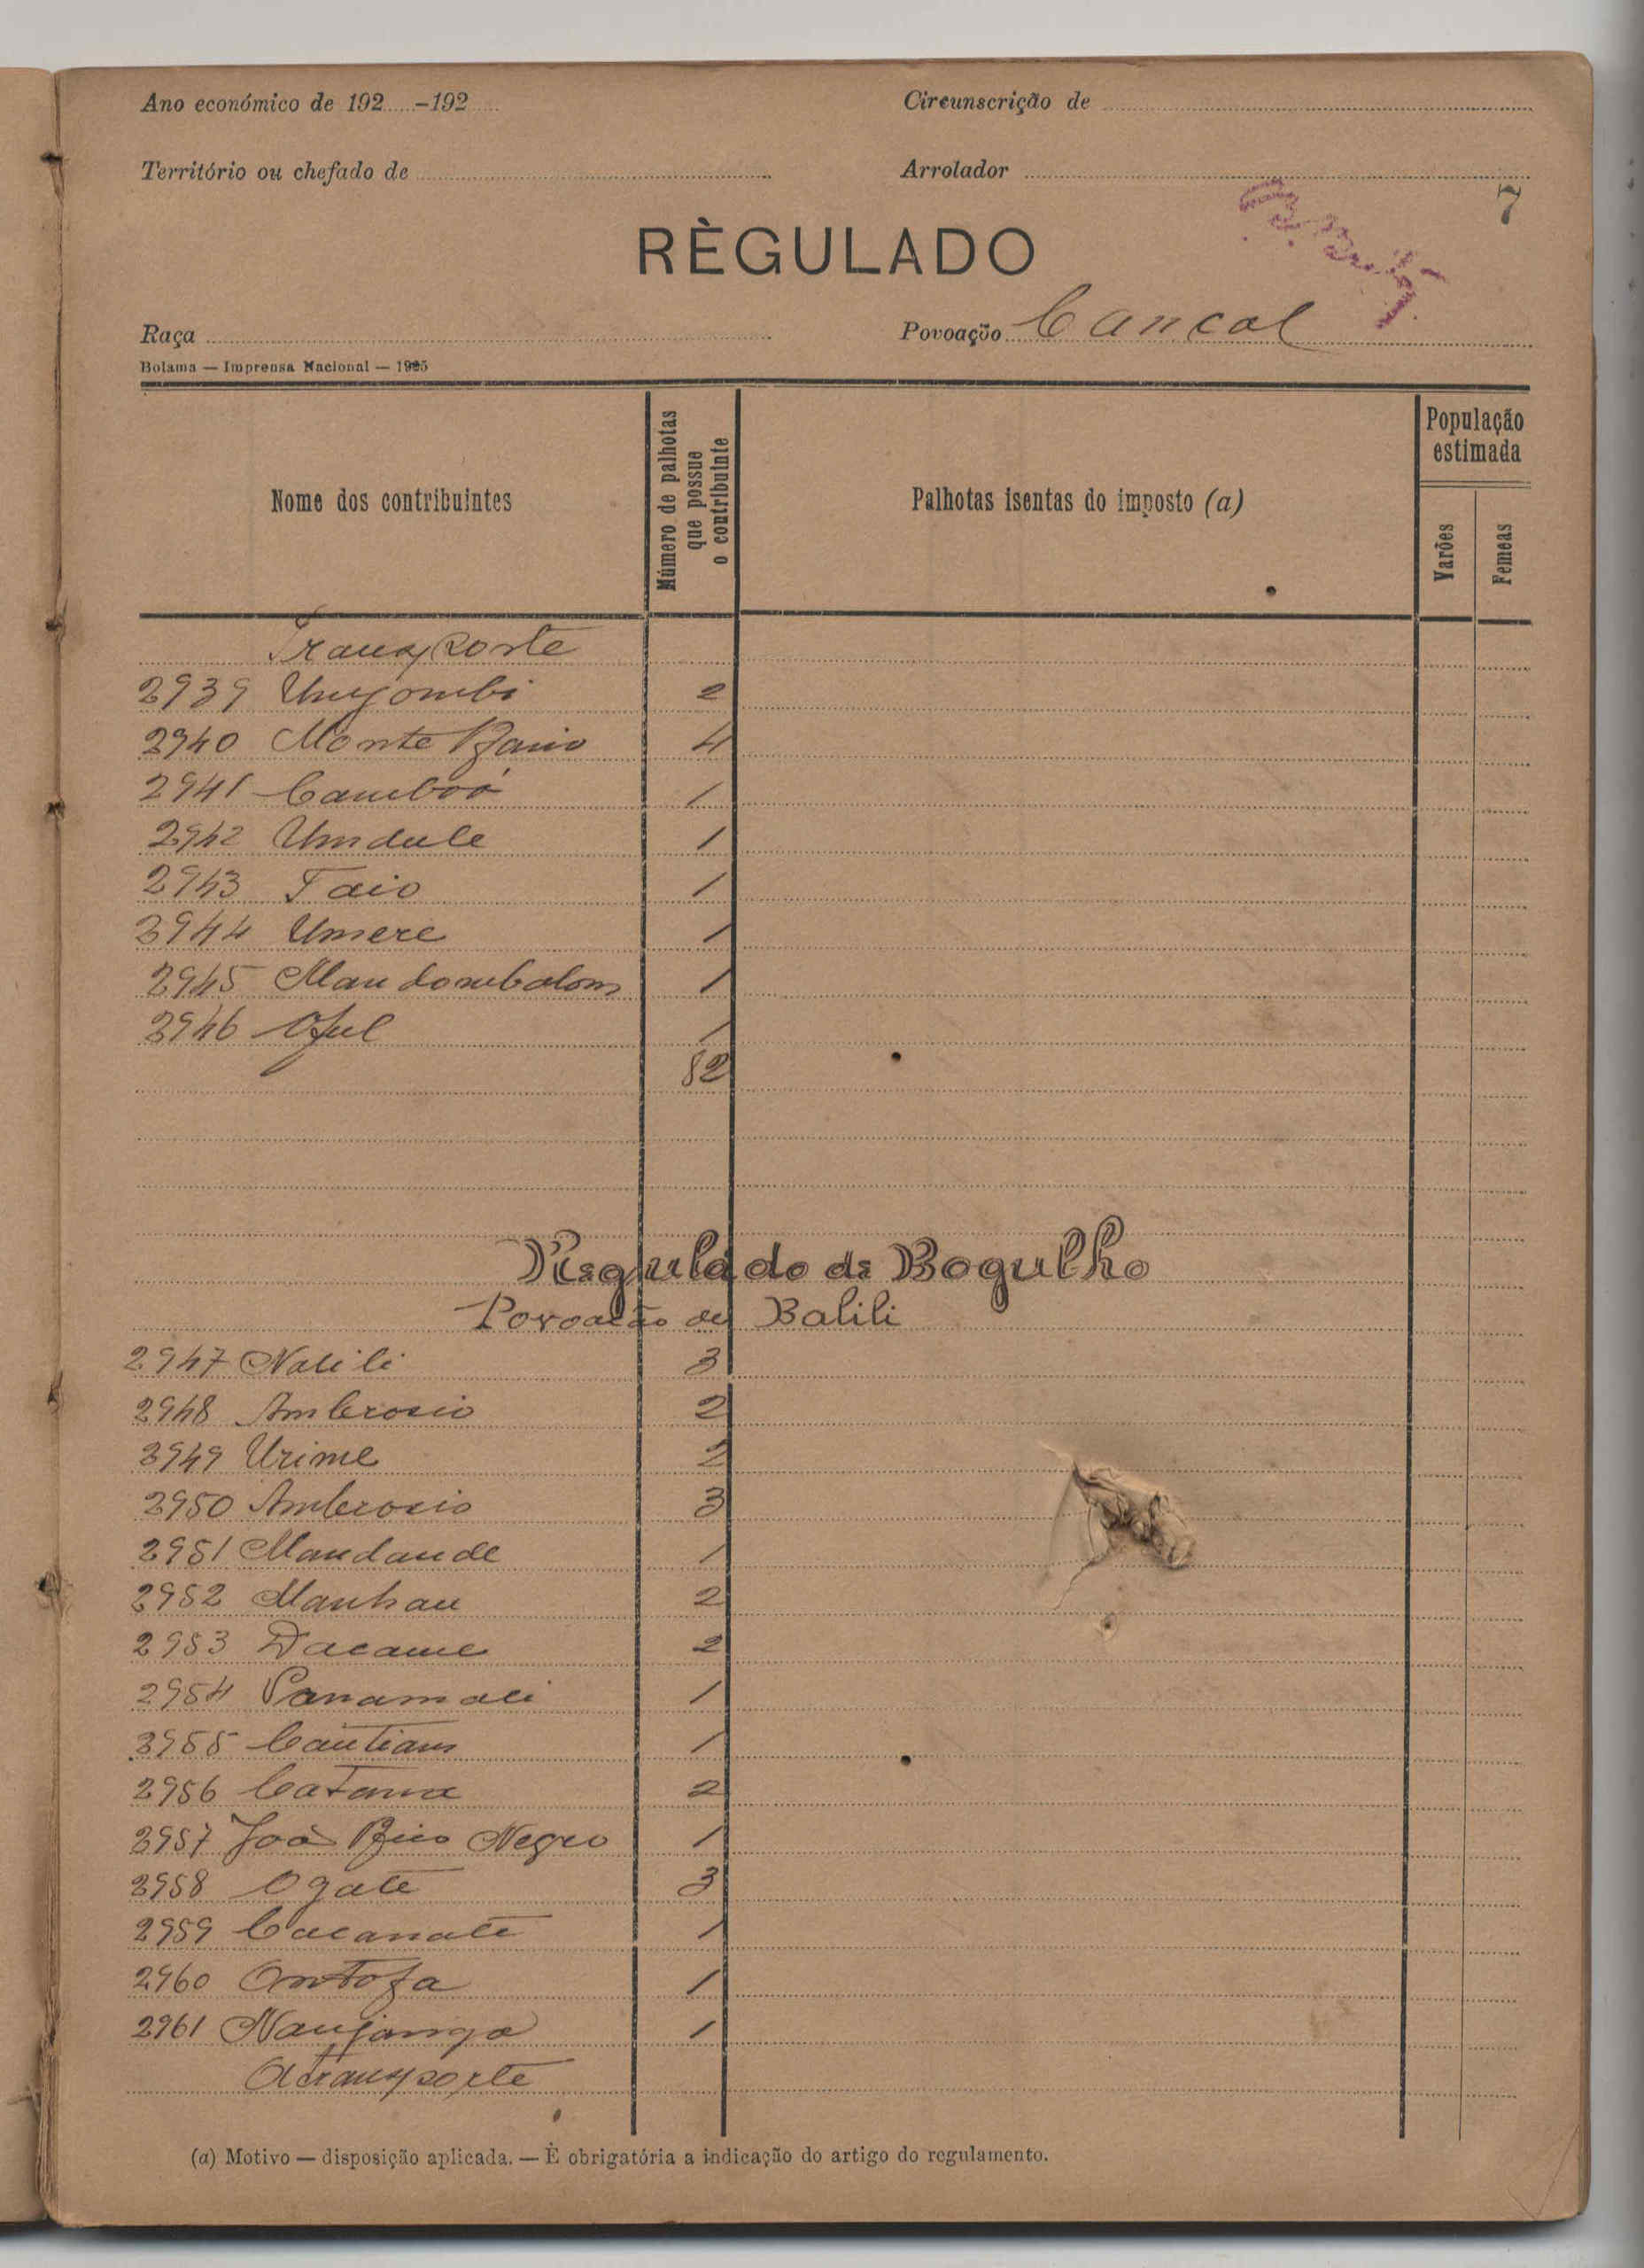 Ano económico de 192.....-192.....
Circunscrição de
Território ou chefado de
Arrolador
7
RÈGULADO
Raça
Povoação Cancal
Bolama — Imprensa Nacional — 1925
Nome dos contribuintes
Número de palhotas que possue o contribuinte
Palhotas isentas do imposto (a)
População estimada
Varões
Femeas
Transporte
2939 Ungombi 2
2940 Monte Baiio 4
2941 Camboó 1
2942 Undule 1
2943 Taio 1
2944 Umere 1
2945 Mandombolom 1
2946 Oful 1
82
Regulado de Bogulho
Povoação de Balili
2947 Nalili 3
2948 Ambrosio 2
2949 Urime 2
2950 Ambrosio 3
2951 Mandande 1
2952 Manhau 2
2953 Dacame 2
2954 Panamali 1
2955 Cautiam 1
2956 Catama 2
2957 João Bico Negro 1
2958 Ogate 3
2959 Cacanate 1
2960 Ontofa 1
2961 Naujanga 1
A transporte
(a) Motivo — disposição aplicada. — È obrigatória a indicação do artigo do regulamento.